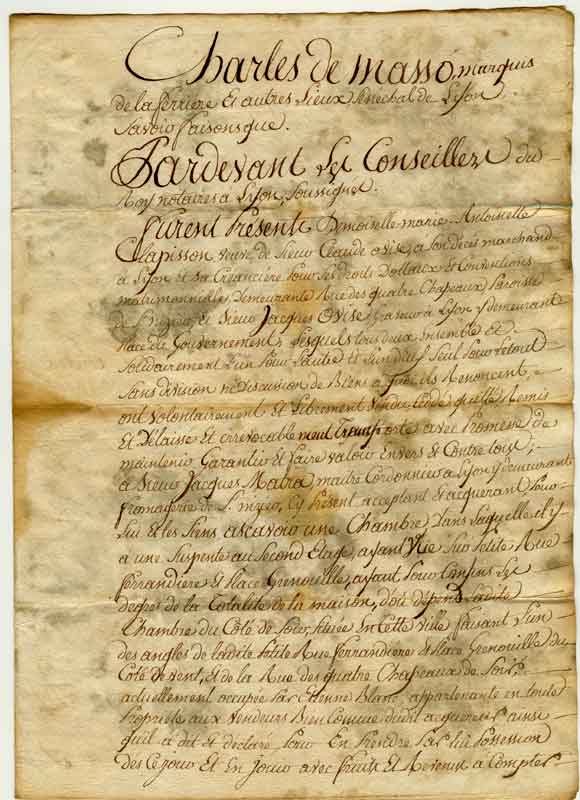 Charles de Masso, marquis
de la ferrière Et autres Lieux Senechal de Lyon
Savoir faisons que.
Pardevant Les Conseillers du
Roy notaires a Lyon, Soussignes.
furent Presents Demoiselle marie Antoinette
Clapisson veuve de Sieur Claude ovise, a son décès marchand
a Lyon et sa Creancière pour ses droits Dottaux et Conventions
matrimonniales, Demeurante Rue des quatre Chapeaux Paroisse
de St. nizier, et Sieur Jacques Ovise, a Lyon y demeurant
place du Gouvernement, Lesquels tous deux ensemble et
Solidairement L'un pour L'autre et L'un d'eux Seul pour Letout
Sans division ni discution de Biens a quoi ils Renoncent,
ont volontairement et Librement vendu, cédé, quitté, Remis
Et Délaissé Et irrevocablement Transportés avec Promesse de
maintenir Garantir et faire valoir Envers et Contre tous;
a Sieur Jacques Matra, maitre Cordonnier a Lyon y demeurant
fromagerie de St. nizier, Cy Present acceptant et acquerant pour
Lui et les Siens, ascavoir une Chambre, Dans Laquelle il y
a une Suspente au Second Etage, ayant Vüe Sur petite Rue
ferrandiere et place Grenouille, ayant pour Confins Les
degres de la Totalité de la maison, d'où dépend ladite
Chambre du Coté de Soir, Située En cette ville faisant L'un
des angles de ladite petite Rue ferrandiere et place Grenouille du
Coté de vent, et de la Rue des quatre Chapeaux de
actuellement occupée par Etienne Blanc, appartenante en toute
Propriété aux vendeurs Bien Connue dudit acquereur ainsi
quil a dit et declaré, pour En Prendre par lui Possession
Des Cejour Et En Jouir avec fruits et Revenus a Compter